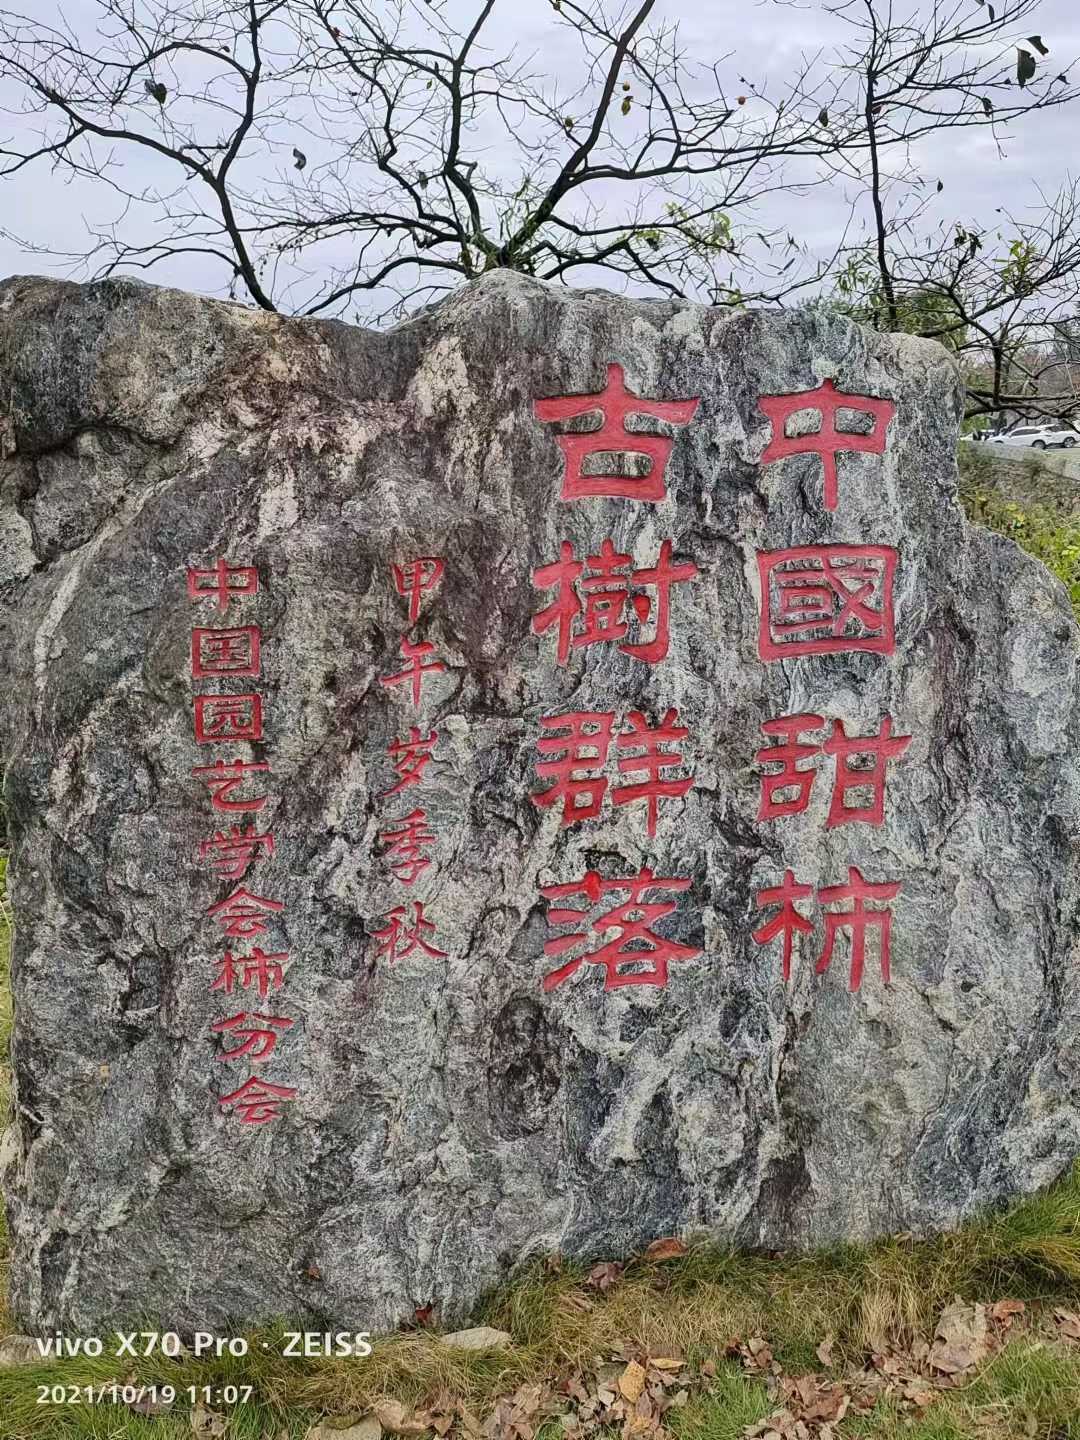 中國甜柿
古樹群落
甲午岁季秋
中国园艺学会柿分会
vivo X70 Pro · ZEISS
2021/10/19 11:07